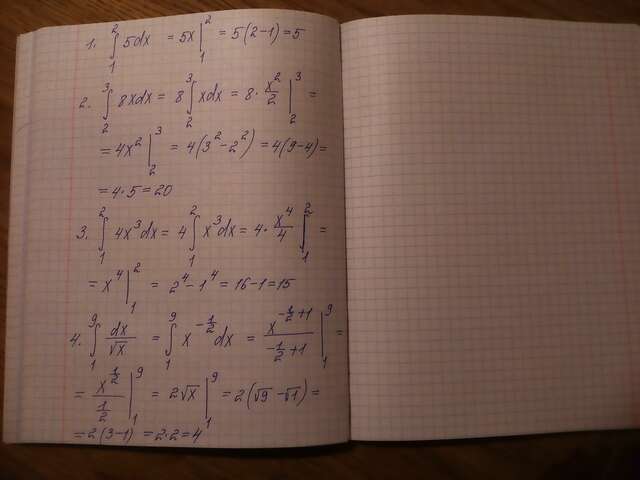 1. ∫₁² 5dx = 5x |₁² = 5(2-1) = 5
2. ∫₂³ 8xdx = 8 ∫₂³ xdx = 8 · x²/2 |₂³ =
= 4x² |₂³ = 4(3² - 2²) = 4(9-4) =
= 4 · 5 = 20
3. ∫₁² 4x³dx = 4 ∫₁² x³dx = 4 · x⁴/4 |₁² =
= x⁴ |₁² = 2⁴ - 1⁴ = 16 - 1 = 15
4. ∫₁⁹ dx/√x = ∫₁⁹ x^(-1/2) dx = x^(-1/2+1)/(-1/2+1) |₁⁹ =
= x^(1/2)/(1/2) |₁⁹ = 2√x |₁⁹ = 2(√9 - √1) =
= 2(3-1) = 2·2 = 4